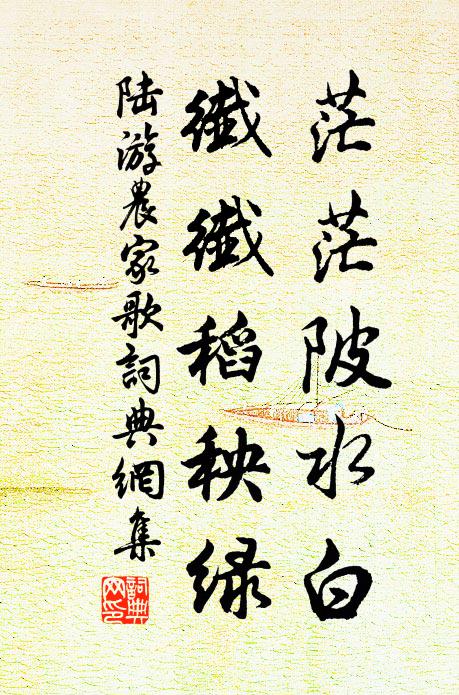 茫茫陂水白
纖纖稻秧綠
陸游農家歌詞典網集
詞典網印